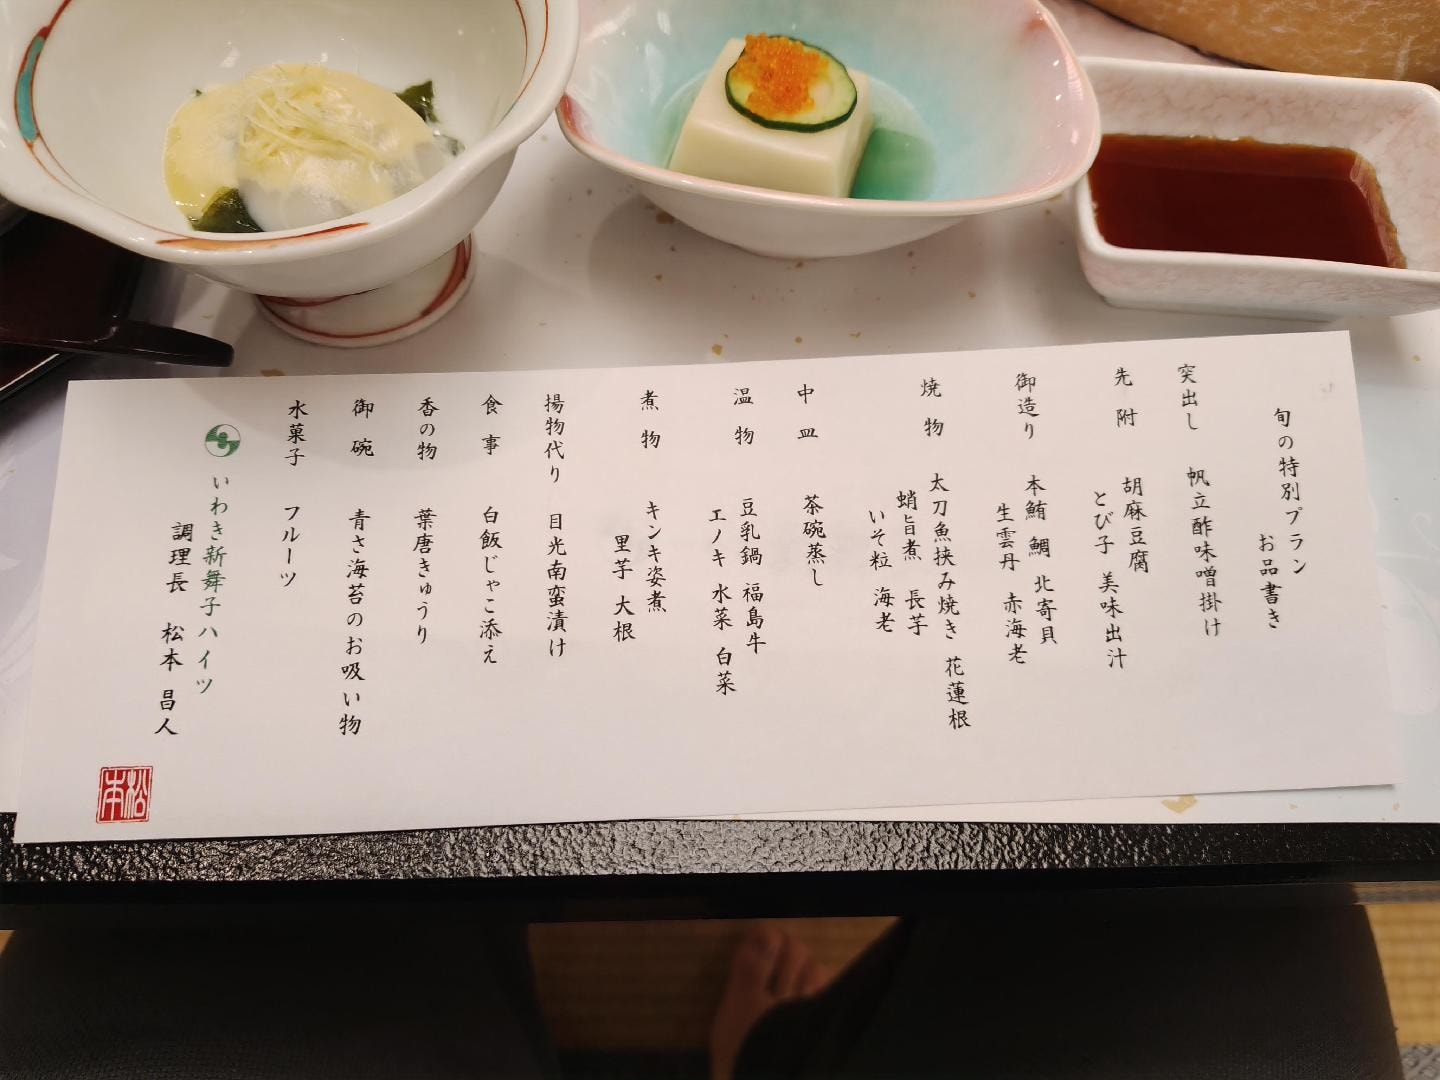 旬の特別プラン
お品書き
突出し 帆立酢味噌掛け
先附 胡麻豆腐
とび子 美味出汁
御造り 本鮪 鯛 北寄貝
生雲丹 赤海老
焼物 太刀魚挟み焼き 花蓮根
蛸旨煮 長芋
いそ粒 海老
中皿 茶碗蒸し
温物 豆乳鍋 福島牛
エノキ 水菜 白菜
煮物 キンキ姿煮
里芋 大根
揚物代り 目光南蛮漬け
食事 白飯じゃこ添え
香の物 葉唐きゅうり
御碗 青さ海苔のお吸い物
水菓子 フルーツ
いわき新舞子ハイツ
調理長 松本 昌人
松本